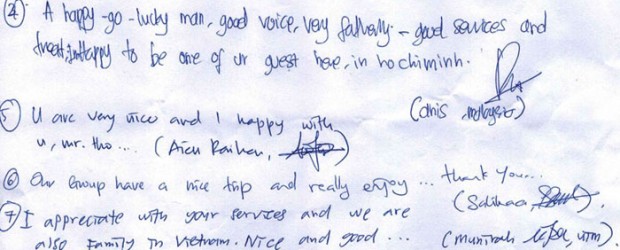 ④ A happy-go-lucky man, good voice, very - good services and
to be one of ur guest here, in hochiminh.
(anis
⑤ U are very nice and I happy with
u, mr. tho... (Aien Raihan,
⑥ Our Group have a nice trip and really enjoy ... thank you...
⑦ I appreciate with your services and we are
also Family in Vietnam. Nice and good ... (Munirah, UTM)